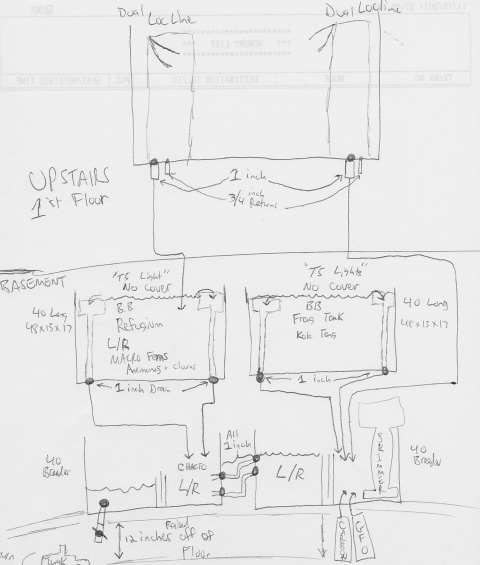 Dual LocLine
Dual Locline
MEMORY LIST
UPSTAIRS
1st Floor
1 inch
3/4 inch
Return
BASEMENT
"T5 Light"
No Cover
"T5 Lights"
No Cover
40 Long
48x13x17
B.B.
Refugium
L/R
Macro
BB
Frag Tank
40 Long
48x13x17
1 inch Drain
1 inch
40
Breeder
CHAETO
L/R
All
1 inch
L/R
SKIMMER
40
Breeder
Raised
12 inches off of
Floor
GFO